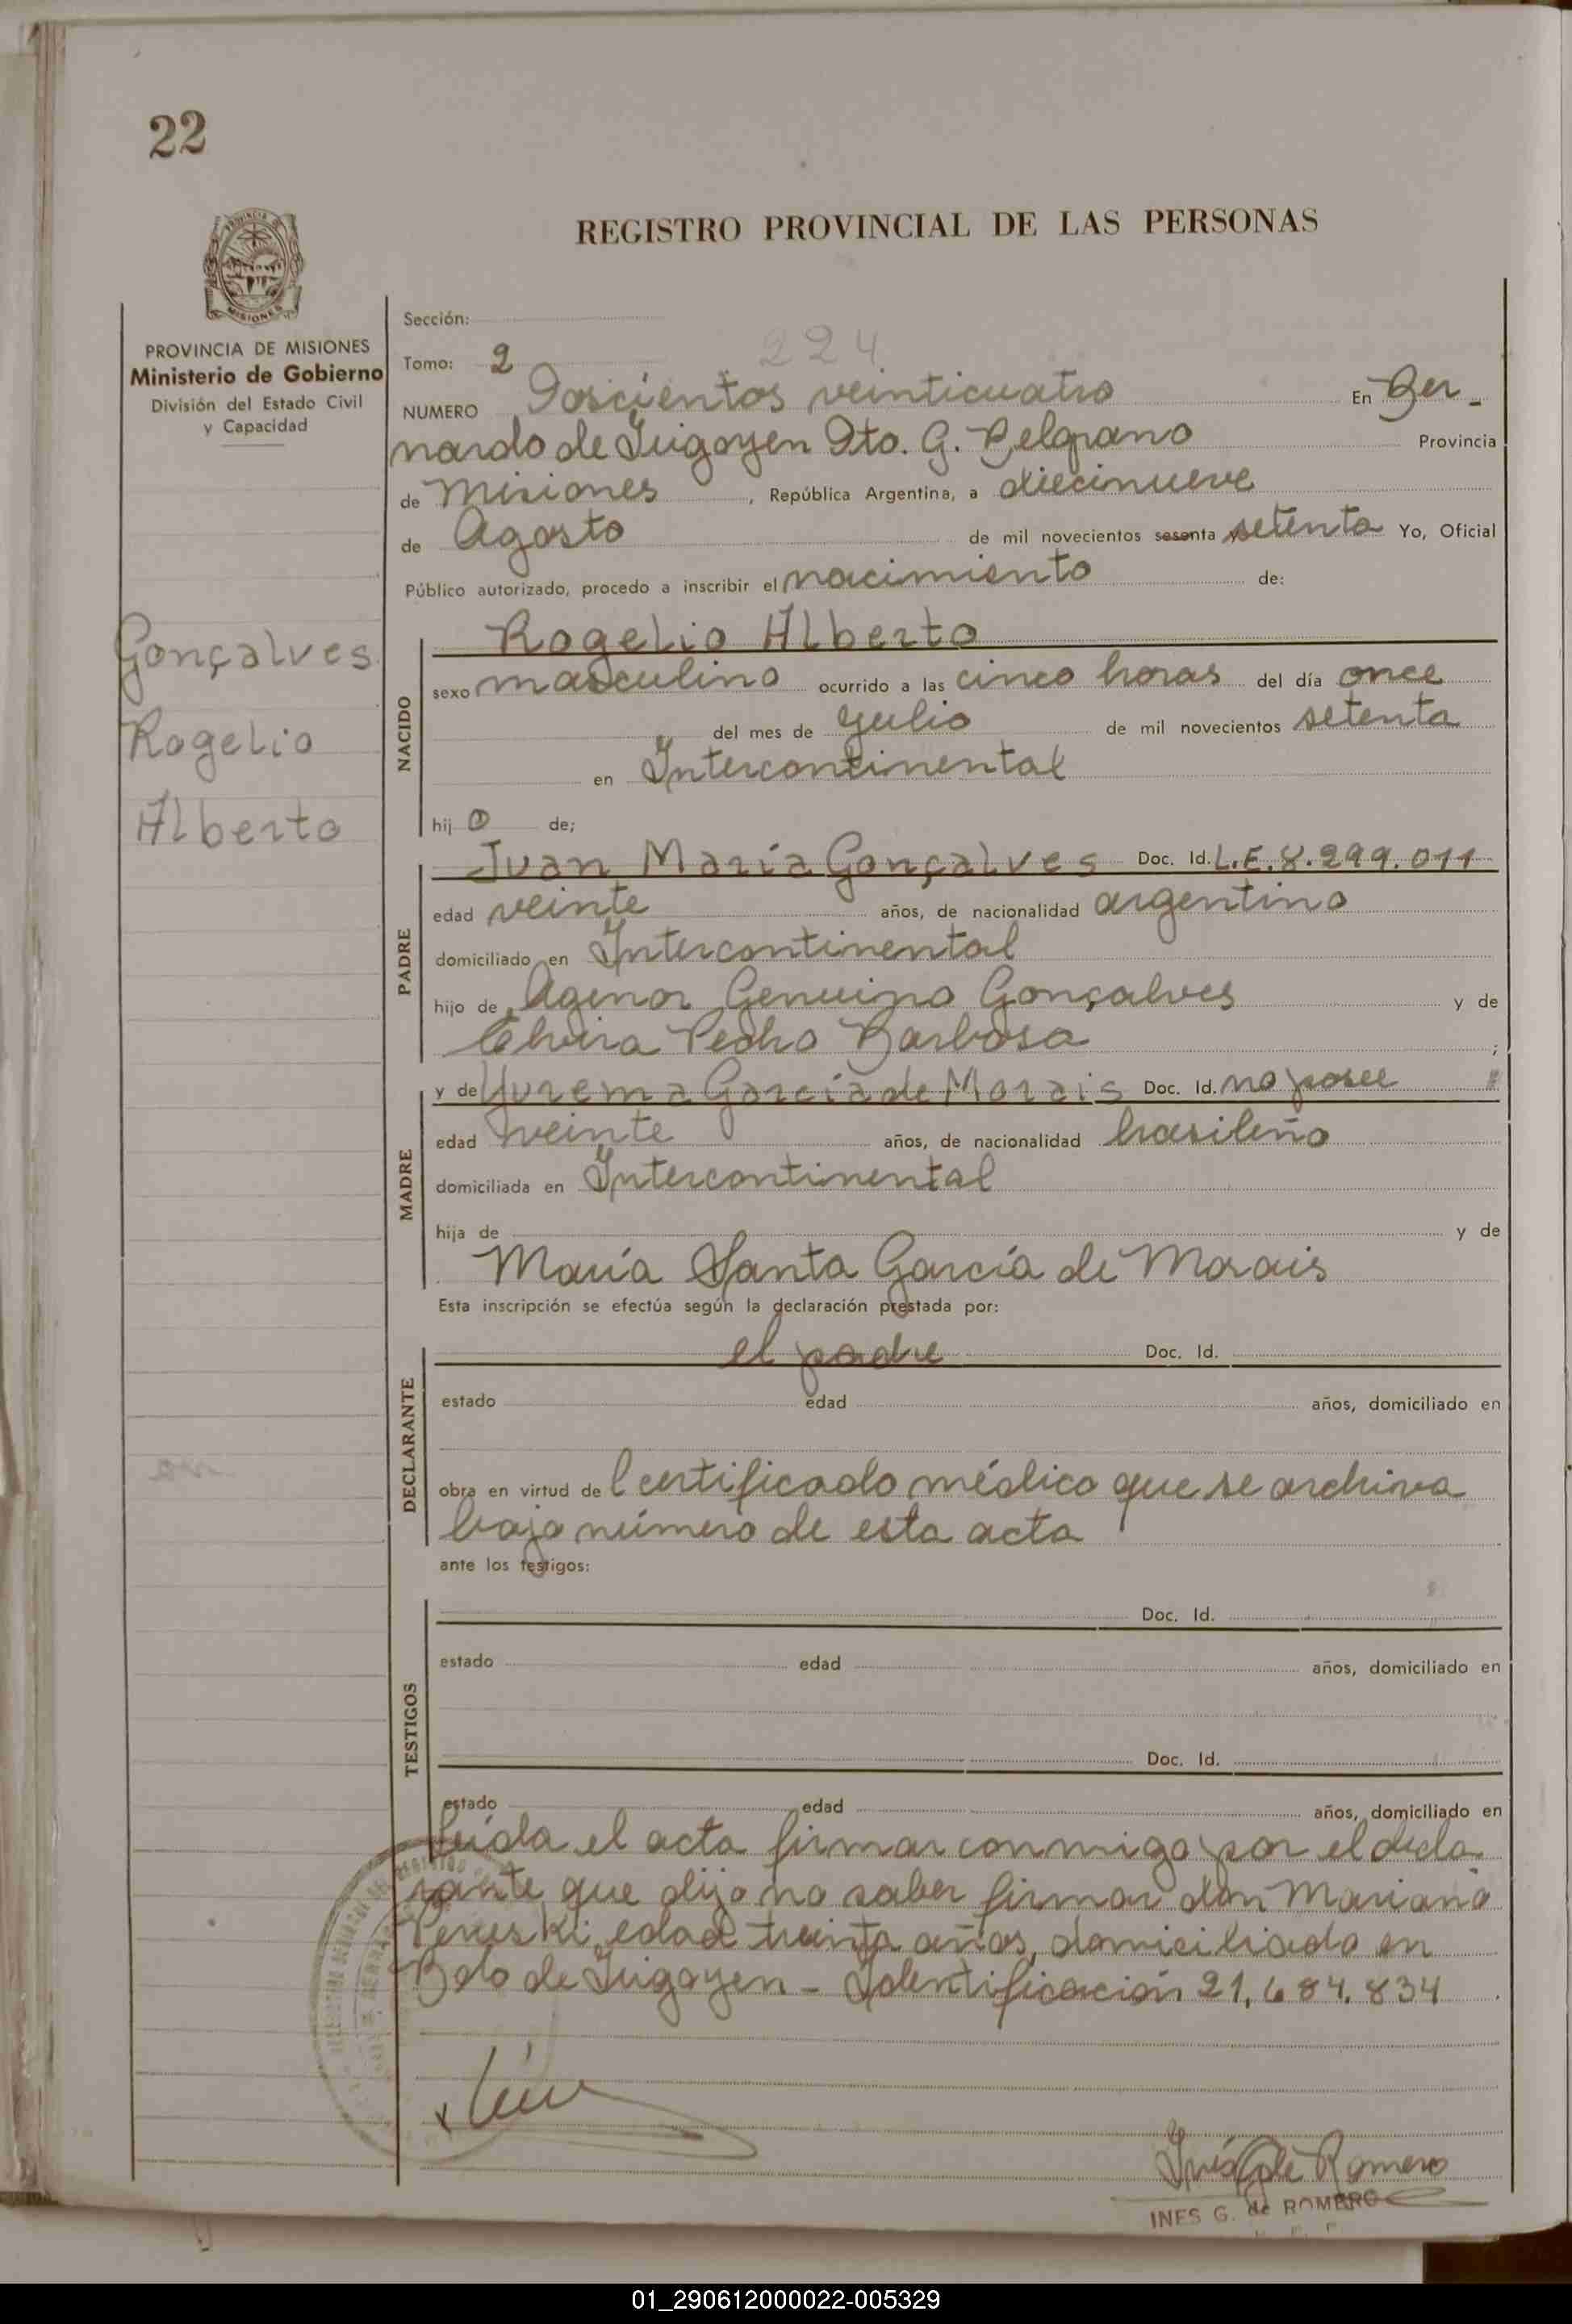 22
REGISTRO PROVINCIAL DE LAS PERSONAS
MISIONES
PROVINCIA DE MISIONES
Ministerio de Gobierno
División del Estado Civil
y Capacidad
Gonçalves
Rogelio
Alberto
Sección:
Tomo: 2 224
NUMERO Doscientos veinticuatro En Ber-
nardo de Irigoyen Dto. G. Belgrano Provincia
de Misiones, República Argentina, a diecinueve
de Agosto de mil novecientos sesenta y setenta Yo, Oficial
Público autorizado, procedo a inscribir el nacimiento de:
NACIDO
Rogelio Alberto
sexo masculino ocurrido a las cinco horas del día once
del mes de Julio de mil novecientos setenta
en Intercontinental
hij o de;
PADRE
Juan María Gonçalves Doc. Id. L.E. 8.299.011
edad veinte años, de nacionalidad argentino
domiciliado en Intercontinental
hijo de Agenor Genuino Gonçalves y de
Elvira Pedro Barbosa ;
MADRE
y de Yurema García de Morais Doc. Id. no posee
edad veinte años, de nacionalidad brasileño
domiciliada en Intercontinental
hija de y de
María Santa García de Morais
Esta inscripción se efectúa según la declaración prestada por:
DECLARANTE
el padre Doc. Id.
estado edad años, domiciliado en
obra en virtud de l certificado médico que se archiva
bajo número de esta acta
ante los testigos:
TESTIGOS
Doc. Id.
estado edad años, domiciliado en
Doc. Id.
estado edad años, domiciliado en
Leída el acta firmar conmigo por el decla-
rante que dijo no saber firmar don Mariano
edad treinta años, domiciliado en
Bdo de Irigoyen - Identificación 21.684.834
Inés G de Romero
INES G. de ROMERO
01_290612000022-005329